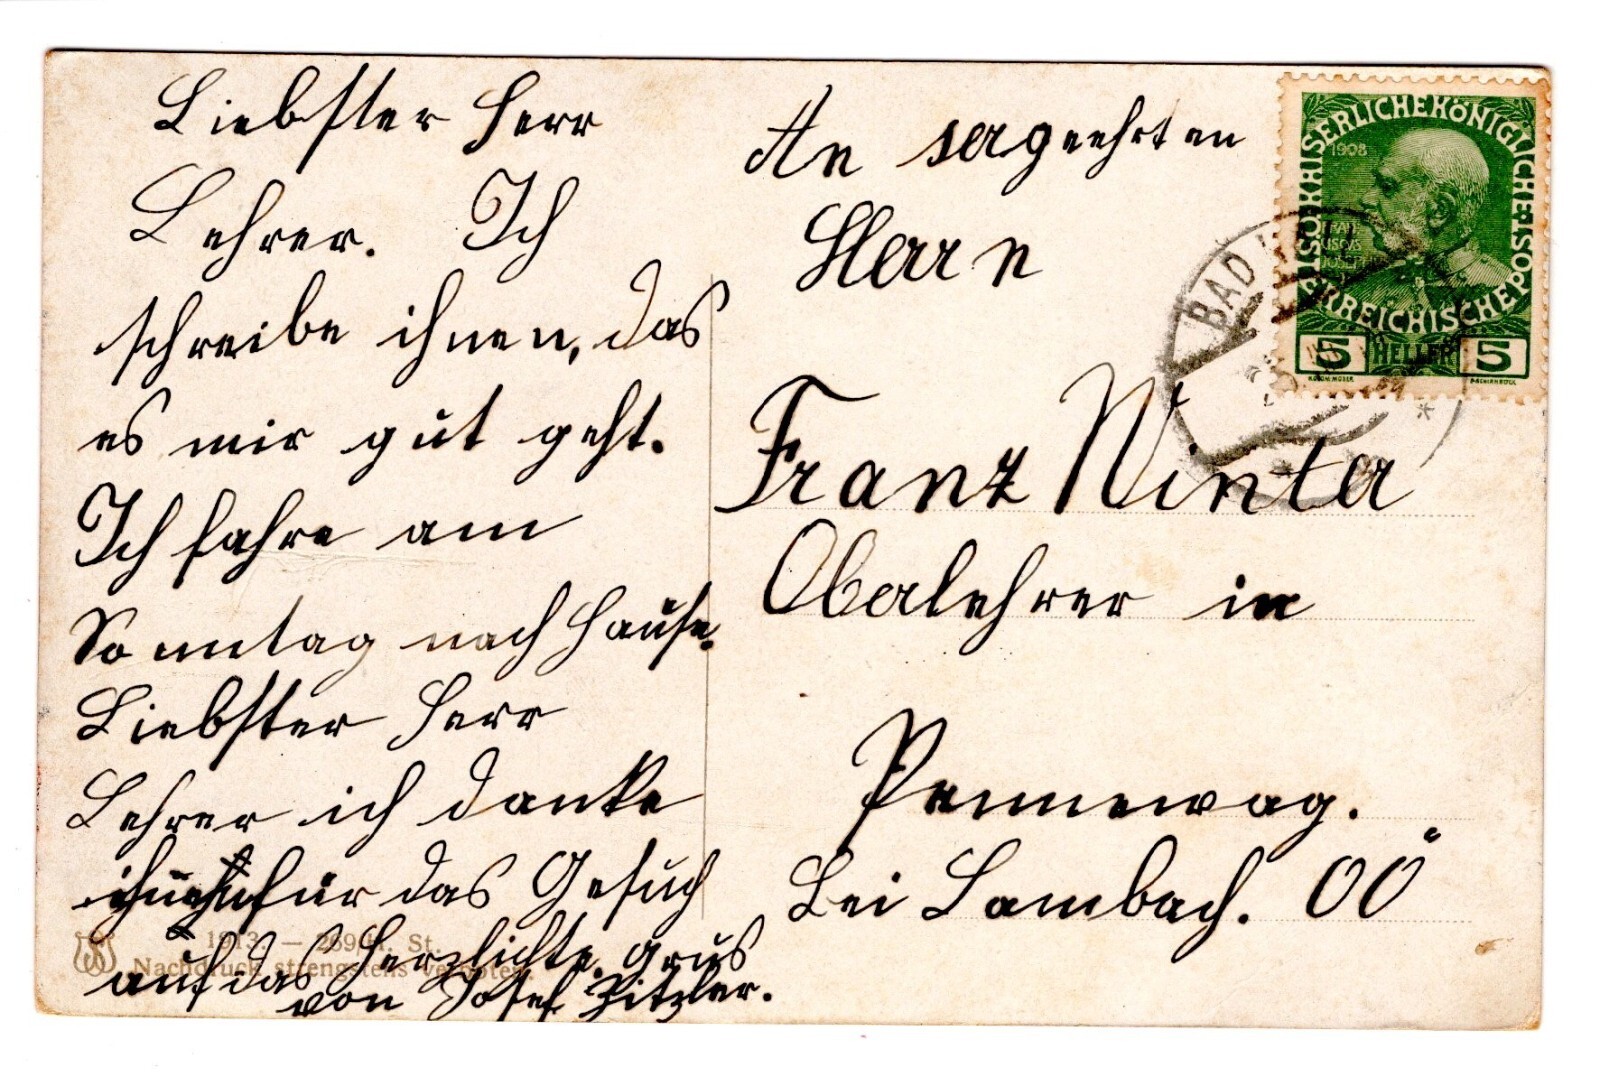 Liebster Herr
Lehrer. Ich
schreibe ihnen, das
es mir gut geht.
Ich fahre am
Sonntag nach Hause.
Liebster Herr
Lehrer ich danke
für das Gesuch
auf das Herzlichste. Grus
von Josef Zitzler.
1913. — 269/II. St.
Nachdruck strengstens verboten.
An sergeehrten
Herrn
Franz Winter
Oberlehrer in
Pennewag.
Bei Lambach. OÖ
KAISERLICHEKÖNIGLICHE ÖSTERREICHISCHE POST
1908
FRAN
CISCVS
IOSEPH I
5 HELLER 5
BAD